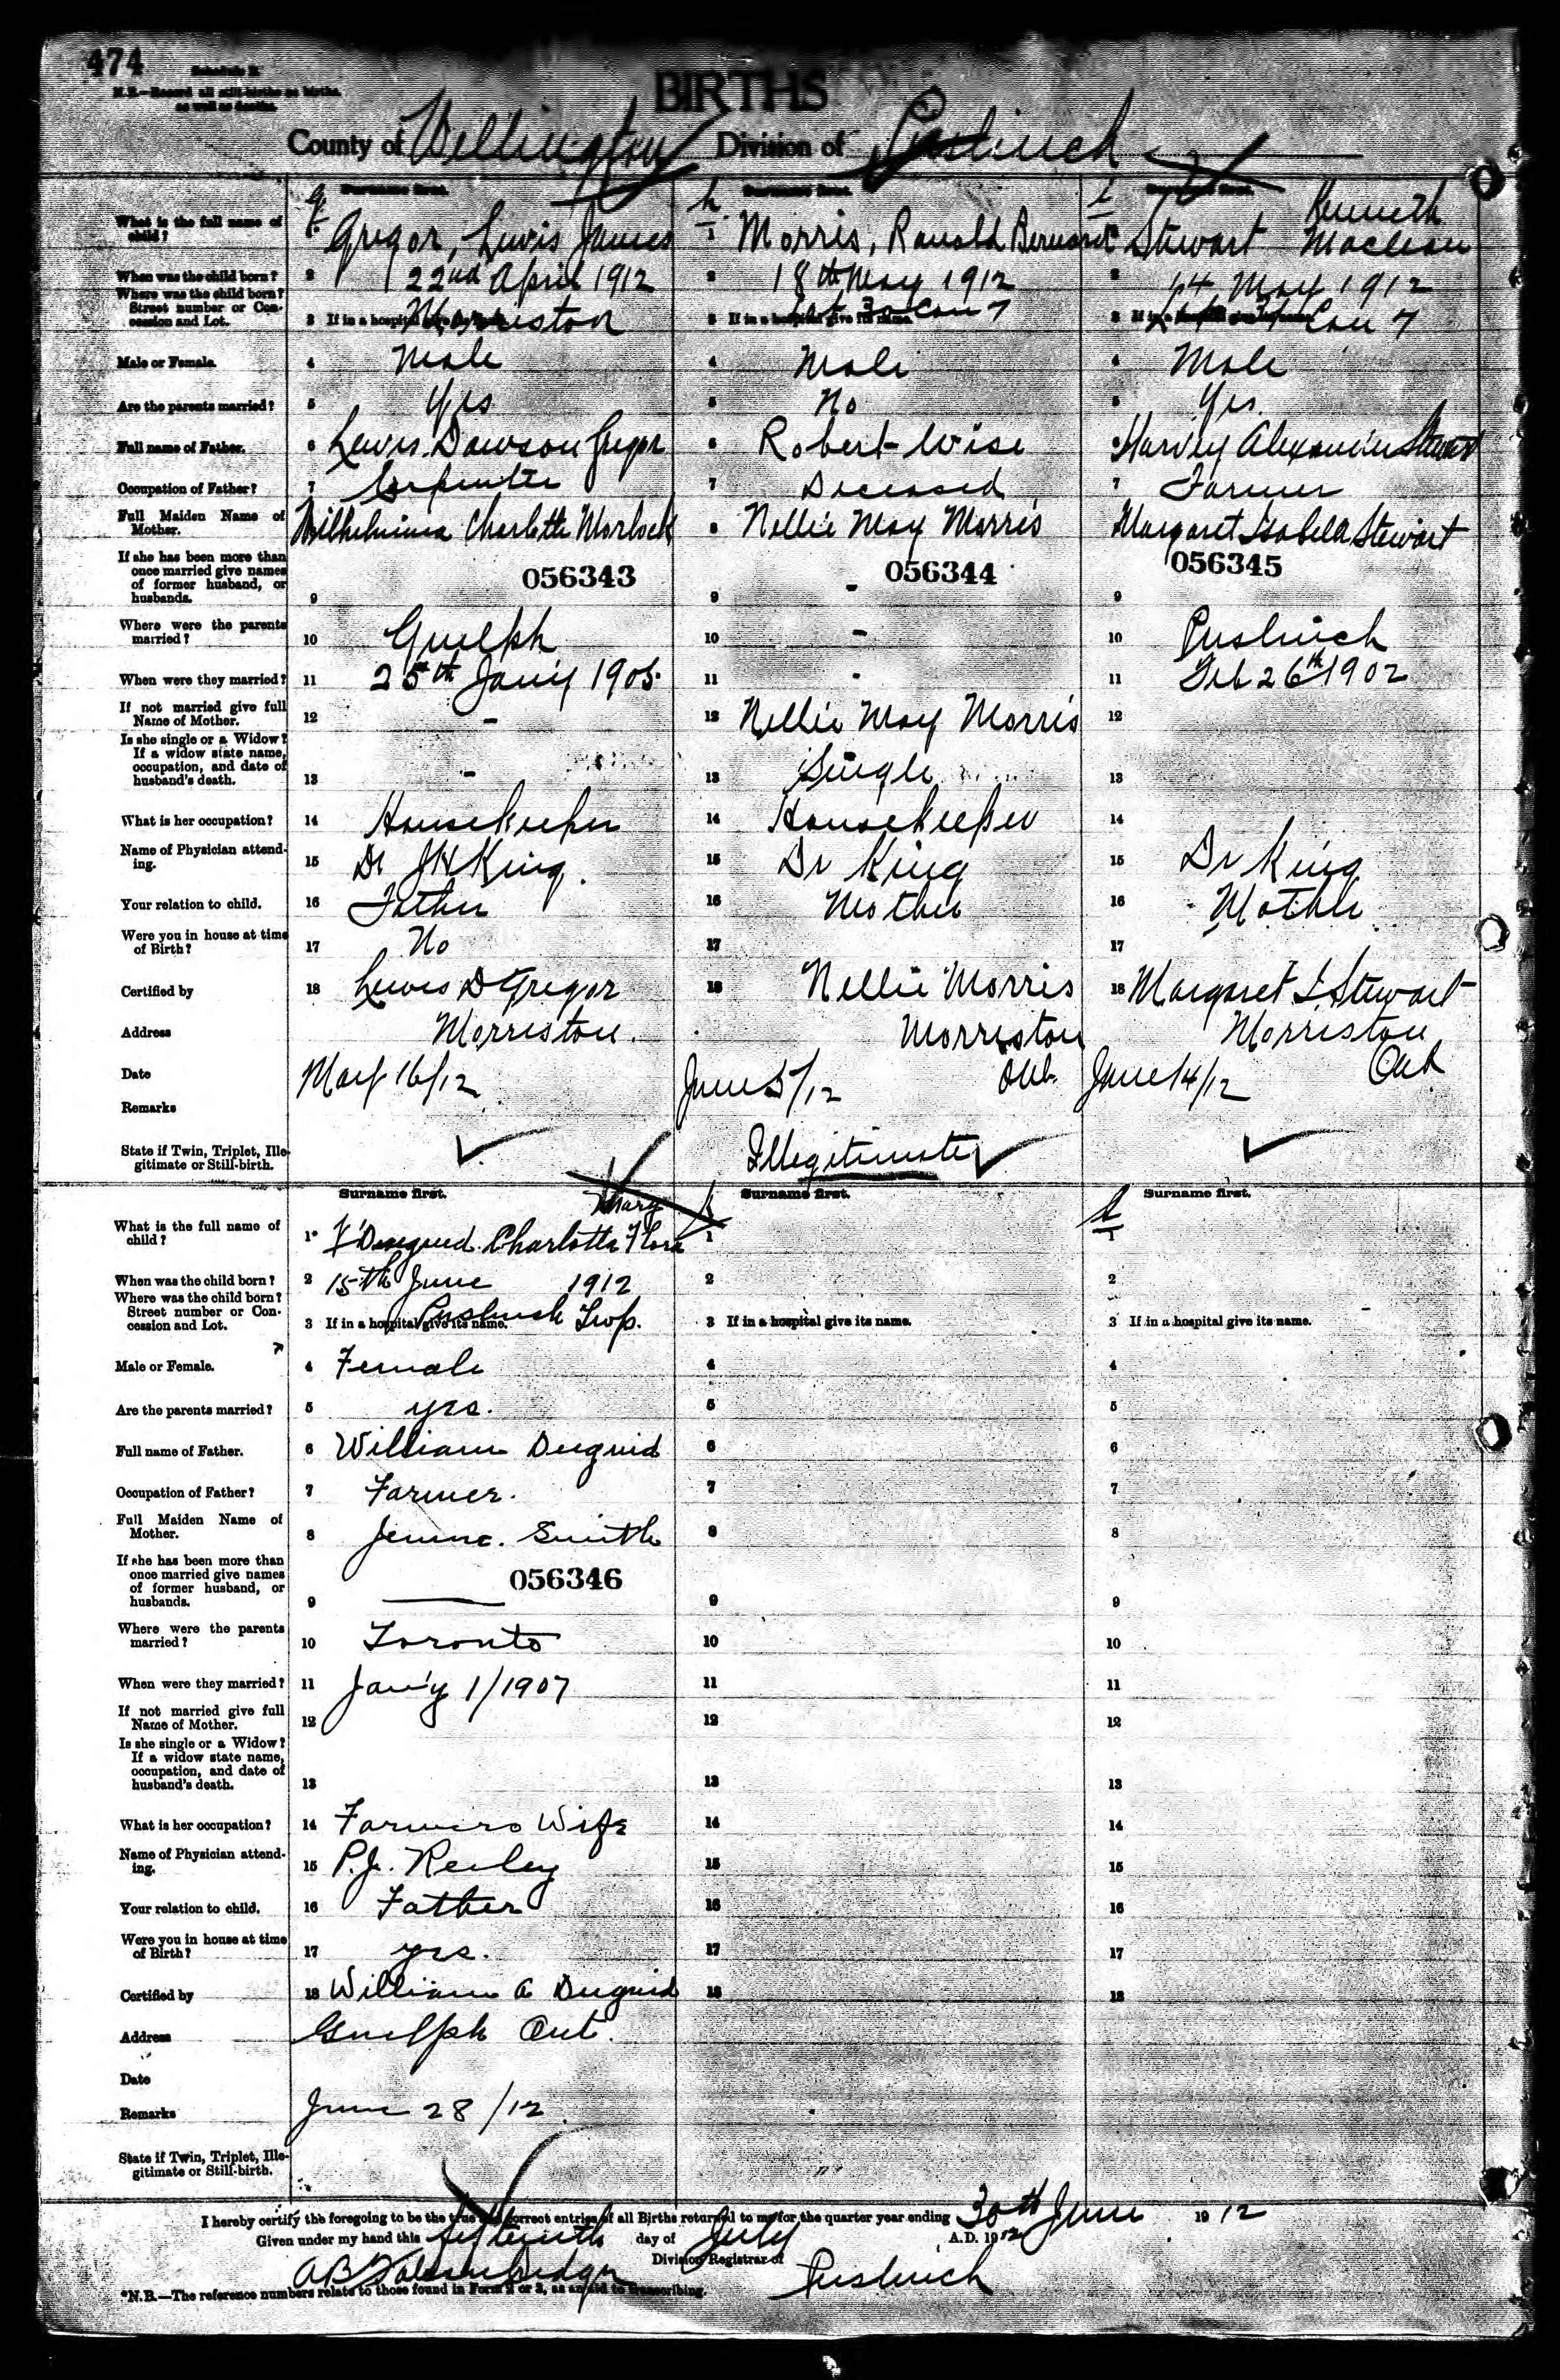 474
Schedule B.
N.B.—Record all still-births as births, as well as deaths.
BIRTHS
County of Wellington Division of Puslinch
Surname first. Surname first. Surname first.
What is the full name of child? 1 Gregor, Lewis James 1 Morris, Ronald Bernard Stewart Kenneth Maclean
When was the child born? 2 22nd April 1912 2 18th May 1912 2 14 May 1912
Where was the child born? Street number or Concession and Lot. 3 If in a hospital give its name. Morriston 3 If in a hospital give its name. Lot 30 Con 7 3 If in a hospital give its name. Con 7
Male or Female. 4 Male 4 Male 4 Male
Are the parents married? 5 Yes 5 No 5 Yes
Full name of Father. 6 Lewis Dawson Gregor 6 Robert Wise 6 Harvey Alexander Stewart
Occupation of Father? 7 Carpenter 7 Deceased 7 Farmer
Full Maiden Name of Mother. Wilhelmina Charlotte Morlock 8 Nellie May Morris Margaret Isabella Stewart
If she has been more than once married give names of former husband, or husbands. 9 056343 9 - 056344 9 056345
Where were the parents married? 10 Guelph 10 - 10 Puslinch
When were they married? 11 25th Jan'y 1905. 11 - 11 Feb 26th 1902
If not married give full Name of Mother. 12 - 12 Nellie May Morris 12
Is she single or a Widow? If a widow state name, occupation, and date of husband's death. 13 - 13 Single 13
What is her occupation? 14 Housekeeper 14 Housekeeper 14
Name of Physician attending. 15 Dr J H King. 15 Dr King 15 Dr King
Your relation to child. 16 Father 16 Mother 16 Mother
Were you in house at time of Birth? 17 No 17 17
Certified by 18 Lewis D Gregor 18 Nellie Morris 18 Margaret I. Stewart
Address Morriston. Morriston Ont. Morriston Ont
Date May 16/12 June 5/12 June 14/12
Remarks
State if Twin, Triplet, Illegitimate or Still-birth. Illegitimate
Surname first. Surname first. Surname first.
What is the full name of child? 1 Duguid Charlotte Flora Mary 1 1
When was the child born? 2 15th June 1912 2 2
Where was the child born? Street number or Concession and Lot. 3 If in a hospital give its name. Puslinch Twp. 3 If in a hospital give its name. 3 If in a hospital give its name.
Male or Female. 4 Female 4 4
Are the parents married? 5 yes. 5 5
Full name of Father. 6 William Duguid 6 6
Occupation of Father? 7 Farmer. 7 7
Full Maiden Name of Mother. 8 Smith 8 8
If she has been more than once married give names of former husband, or husbands. 9 056346 9 9
Where were the parents married? 10 Toronto 10 10
When were they married? 11 Jan'y 1/1907 11 11
If not married give full Name of Mother. 12 12 12
Is she single or a Widow? If a widow state name, occupation, and date of husband's death. 13 13 13
What is her occupation? 14 Farmers Wife 14 14
Name of Physician attending. 15 15 15
Your relation to child. 16 Father 16 16
Were you in house at time of Birth? 17 yes. 17 17
Certified by 18 William A Duguid 18 18
Address Guelph Ont.
Date
Remarks June 28/12
State if Twin, Triplet, Illegitimate or Still-birth.
I hereby certify the foregoing to be the true and correct entries of all Births returned to me for the quarter year ending 30th June 1912
Given under my hand this fifteenth day of July A.D. 1912
Division Registrar of Puslinch
*N.B.—The reference numbers relate to those found in Form 2 or 3, as an aid to transcribing.